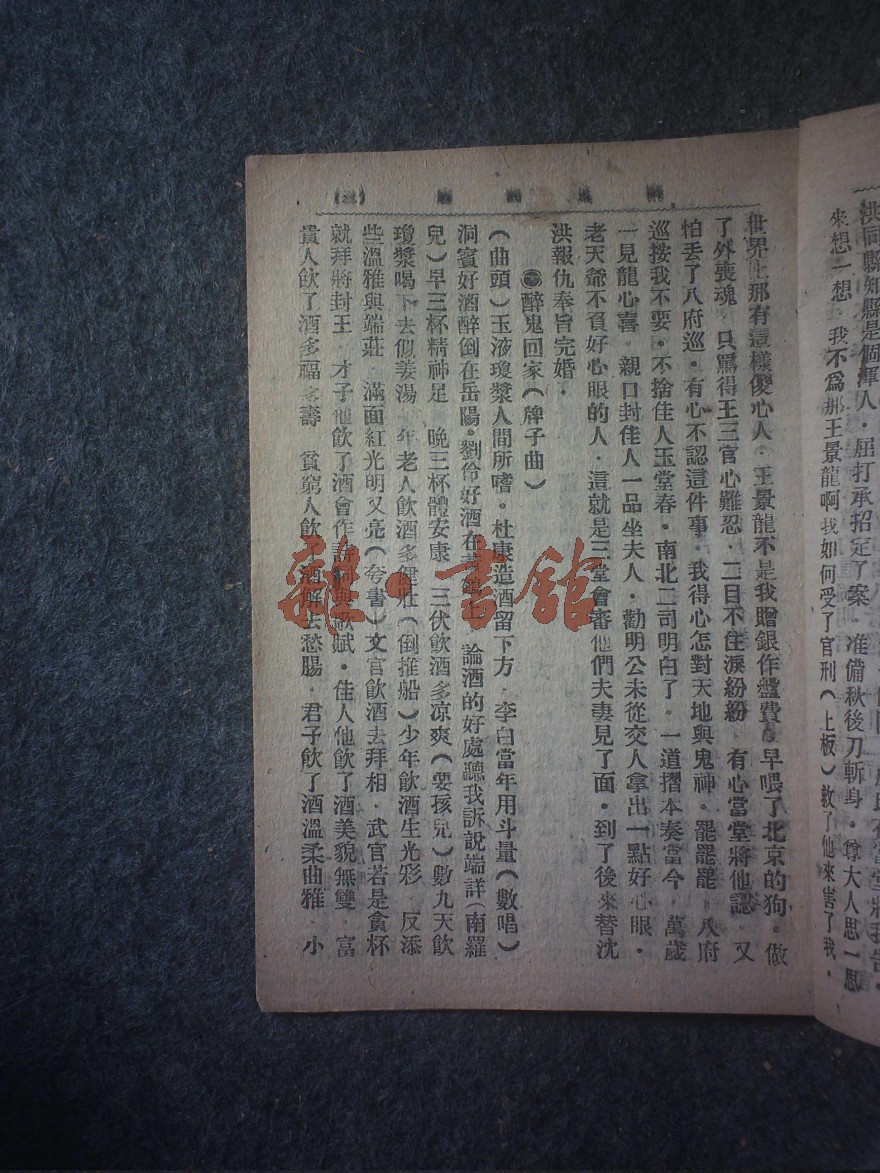 洪同縣知縣是個渾人．屈打承招定了案．准備秋後刀斬身．尊大人思一思
來想一想．我不爲那王景龍啊我如何受了官刑（上板）救了他來害了我．
世界上那有這樣傻心人．王景龍不是我贈銀作盤費．早喂了北京的狗．做
了外喪魂．只罵得王三官心難忍．二目不住淚紛紛．有心當堂將他認．又
怕丟了八府巡．有心不認這件事．我得心怎對天地與鬼神．罷罷罷．八府
巡按我不要．不捨佳人玉堂春．南北二司明白了．一道摺本奏當今．萬歲
一見龍心喜．親口封佳人一品坐夫人．勸明公未從交人拿出一點好心眼．
老天爺不負好心眼的人．這就是三堂會審他們夫妻見了面．到了後來替沈
洪報仇奉旨完婚．
醉鬼回家（牌子曲）
（曲頭）玉液瓊漿人間所嗜．杜康造酒留下方．李白當年用斗量（數唱）
洞賓好酒醉倒在岳陽．劉伶好酒在 論酒的好處聽我訴說端詳（南羅
兒）早三杯精神足 晚三杯體安康 三伏飲酒多凉爽（要孩兒）數九天飲
瓊漿喝下去似姜湯 年老人飲酒多健壯（倒推船）少年飲酒生光彩．反添
些溫雅與端莊．滿面紅光明又亮（夸書）文官飲酒去拜相．武官若是貪杯
就拜將封王．才子他飲了酒會作詩詞與歌賦．佳人他飲了酒美貌無雙．富
貴人飲了酒多福多壽 貧窮人飲了酒解去愁腸．君子飲了酒溫柔曲雅．小
雜·書館